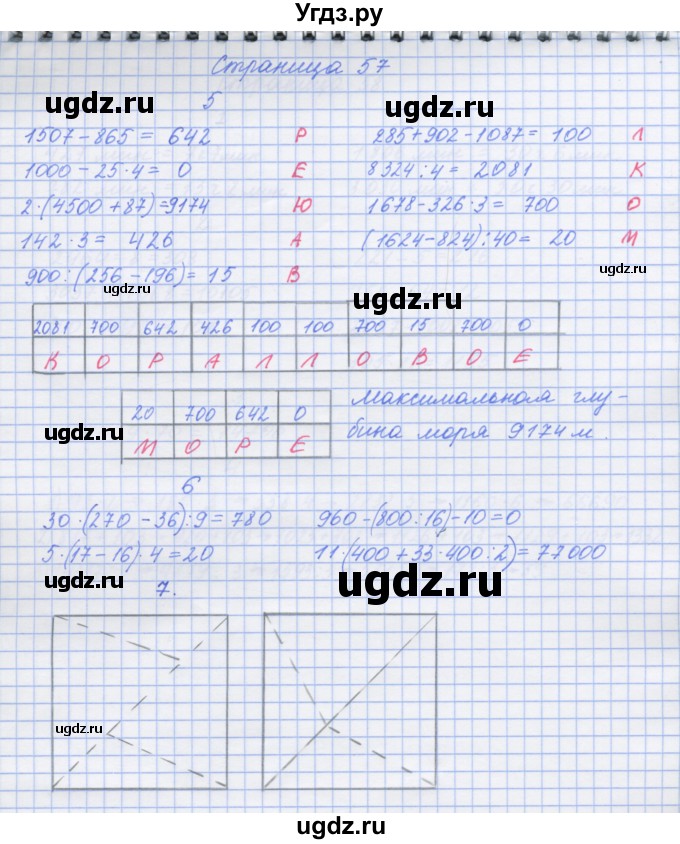 Угдз.ру
Страница 57
ugdz.ru ugdz.ru
5
1507 - 865 = 642 Р 285+902-1087= 100 Л
1000 - 25·4= 0 Е 8324:4= 2081 К
2·(4500 +87)=9174 Ю 1678-326·3= 700 О
142·3= 426 А (1624-824):40= 20 М
900:(256-196)= 15 В
ugdz.ru ugdz.ru
ugdz.ru
2081 700 642 426 100 100 700 15 700 0
К О Р А Л Л О В О Е
20 700 642 0 Максимальная глу-
ugdz.ru М О Р Е бина моря 9174 м.
ugdz.ru
6
30·(270 - 36):9=780 960-(800:16)-10=0
5·(17-16)·4=20 11·(400+33·400:2)=77000
ugdz.ru ugdz.ru
7.
ugdz.ru
ugdz.ru
ugdz.ru